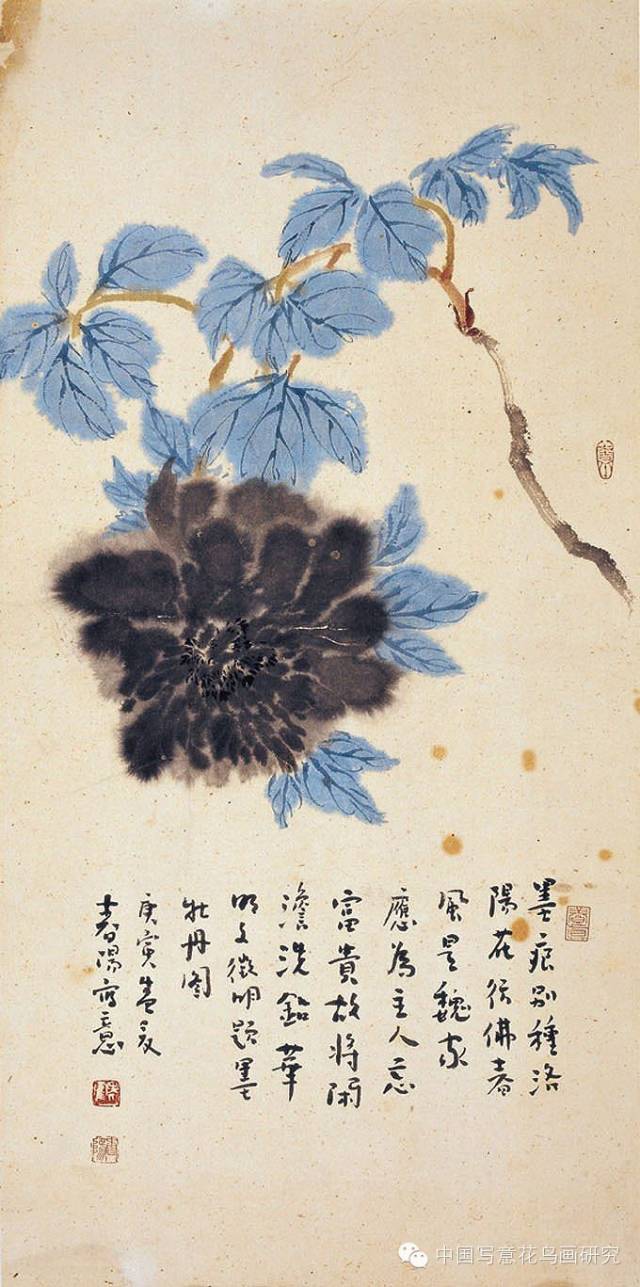 墨痕别種洛
陽花彷佛春
風是魏家
應為主人忘
富貴故將閑
澹洗鉛華
明文徵明題墨
牡丹图
庚寅盛夏
春陽寫意
中国写意花鸟画研究